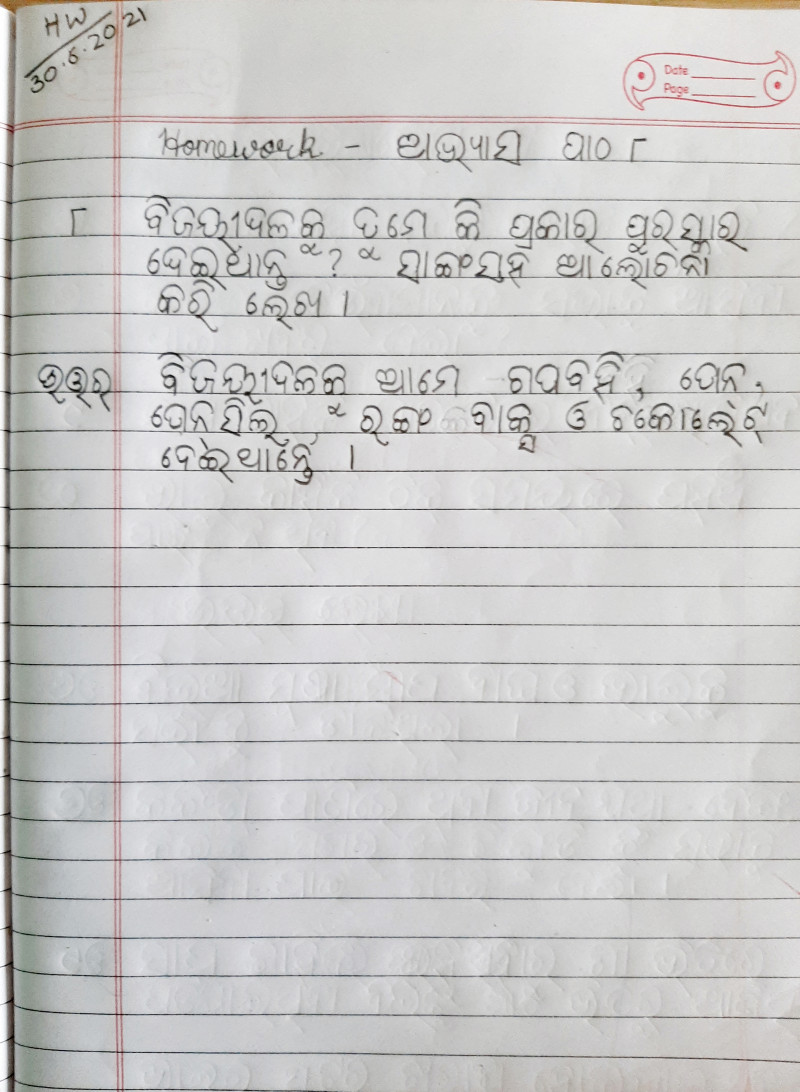 HW
30.6.2021
Date
Page
Homework - ଅଭ୍ୟାସ ପାଠ ୮
୮ ବିଜୟୀଦଳକୁ ତୁମେ କି ପ୍ରକାର ପୁରସ୍କାର
ଦେଇଥାନ୍ତୁ ? ସାଙ୍ଗସହ ଆଲୋଚନା
କରି ଲେଖ ।
ଉତ୍ତର ବିଜୟୀଦଳକୁ ଆମେ ଗପବହି, ପେନ,
ପେନସିଲ ରଙ୍ଗ ବାକ୍ସ ଓ ଚକୋଲେଟ୍
ଦେଇଥାନ୍ତୁ ।